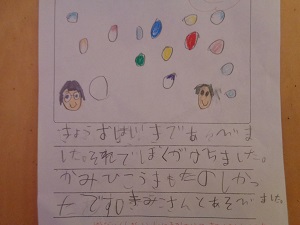 きょうおはじきであそびま
した。それでぼくがかちました。
かみひこうきもたのしかっ
たです。きみこさんとあそびました